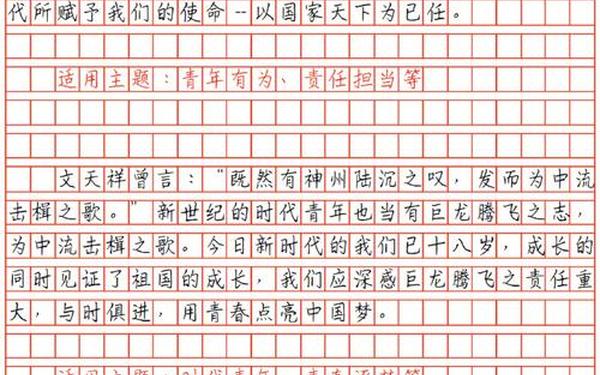 代所赋予我们的使命--以国家天下为已任。
适用主题：青年有为、责任担当等
文天祥曾言：“既然有神州陆沉之叹，发而为中流
击楫之歌。”新世纪的时代青年也当有巨龙腾飞之志，
为中流击楫之歌。今日新时代的我们已十八岁，成长的
同时见证了祖国的成长，我们应深感巨龙腾飞之责任重
大，与时俱进，用青春点亮中国梦。
适用主题：时代青年、青春逐梦等